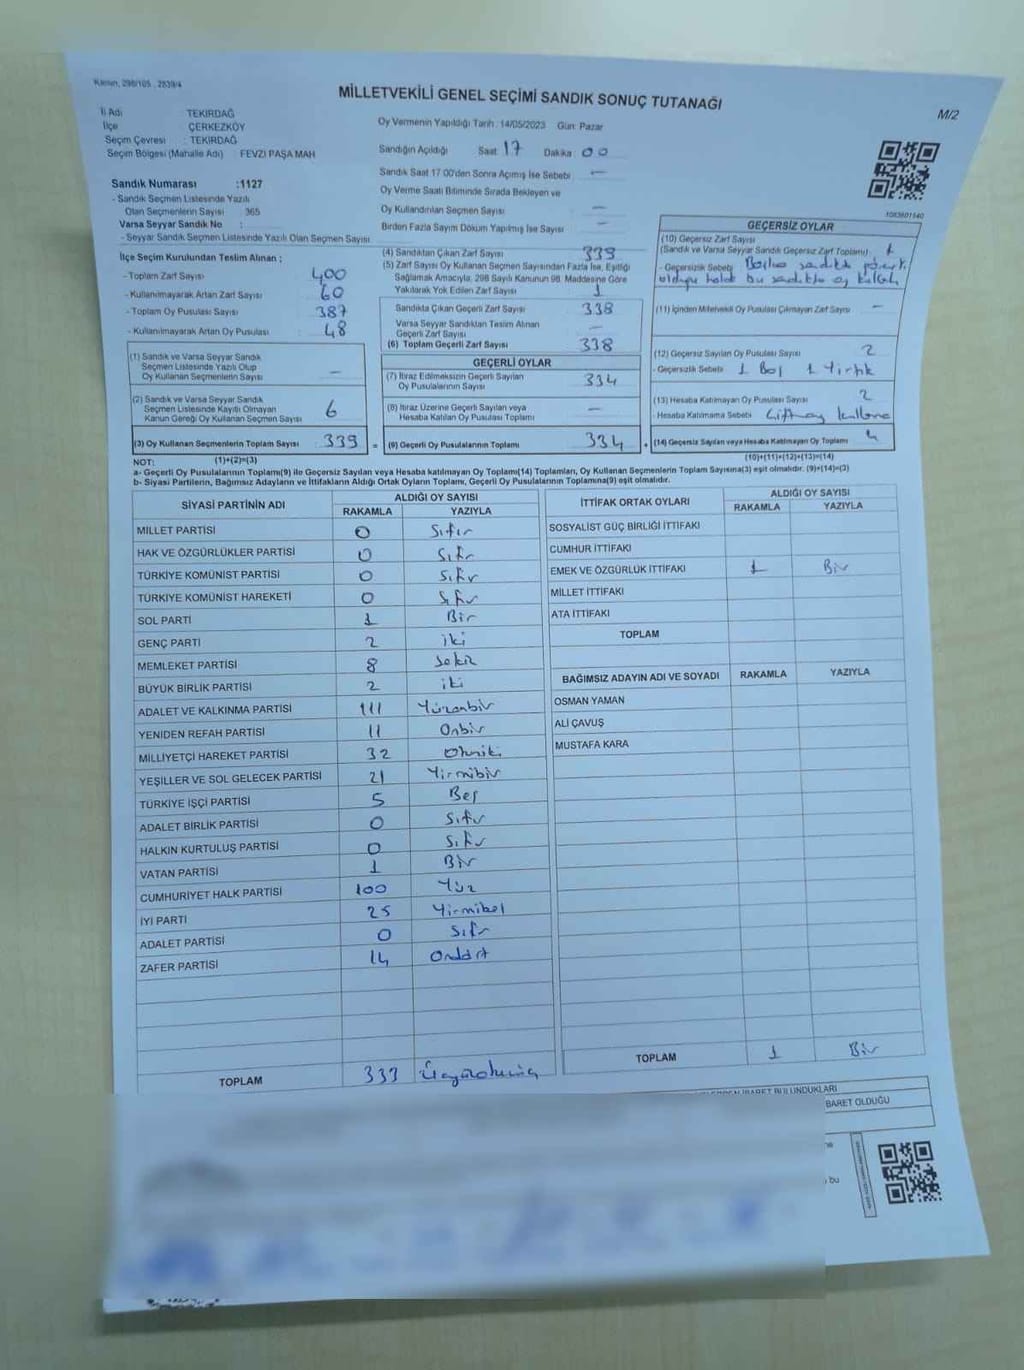 Kanun, 298/105 , 2839/4
MİLLETVEKİLİ GENEL SEÇİMİ SANDIK SONUÇ TUTANAĞI
M/2
İl Adı : TEKİRDAĞ
İlçe : ÇERKEZKÖY
Seçim Çevresi : TEKİRDAĞ
Seçim Bölgesi (Mahalle Adı) : FEVZİ PAŞA MAH
Sandık Numarası :1127
- Sandık Seçmen Listesinde Yazılı
Olan Seçmenlerin Sayısı : 365
Varsa Seyyar Sandık No :
- Seyyar Sandık Seçmen Listesinde Yazılı Olan Seçmen Sayısı
İlçe Seçim Kurulundan Teslim Alınan ;
- Toplam Zarf Sayısı 400
- Kullanılmayarak Artan Zarf Sayısı 60
- Toplam Oy Pusulası Sayısı 387
- Kullanılmayarak Artan Oy Pusulası 48
(1) Sandık ve Varsa Seyyar Sandık
Seçmen Listesinde Yazılı Olup
Oy Kullanan Seçmenlerin Sayısı —
(2) Sandık ve Varsa Seyyar Sandık
Seçmen Listesinde Kayıtlı Olmayan
Kanun Gereği Oy Kullanan Seçmen Sayısı 6
(3) Oy Kullanan Seçmenlerin Toplam Sayısı 339 =
Oy Vermenin Yapıldığı Tarih : 14/05/2023 Gün: Pazar
Sandığın Açıldığı Saat 17 Dakika 00
Sandık Saat 17.00'den Sonra Açılmış İse Sebebi —
Oy Verme Saati Bitiminde Sırada Bekleyen ve
Oy Kullandırılan Seçmen Sayısı —
Birden Fazla Sayım Döküm Yapılmış İse Sayısı —
(4) Sandıktan Çıkan Zarf Sayısı 339
(5) Zarf Sayısı Oy Kullanan Seçmen Sayısından Fazla İse, Eşitliği
Sağlamak Amacıyla, 298 Sayılı Kanunun 98. Maddesine Göre
Yakılarak Yok Edilen Zarf Sayısı 1
Sandıkta Çıkan Geçerli Zarf Sayısı 338
Varsa Seyyar Sandıktan Teslim Alınan
Geçerli Zarf Sayısı —
(6) Toplam Geçerli Zarf Sayısı 338
GEÇERLİ OYLAR
(7) İtiraz Edilmeksizin Geçerli Sayılan
Oy Pusulalarının Sayısı 334
(8) İtiraz Üzerine Geçerli Sayılan veya
Hesaba Katılan Oy Pusulası Toplamı —
(9) Geçerli Oy Pusulalarının Toplamı 334 +
1083601140
GEÇERSİZ OYLAR
(10) Geçersiz Zarf Sayısı
(Sandık ve Varsa Seyyar Sandık Geçersiz Zarf Toplamı) : 1
- Geçersizlik Sebebi Başka sandıkta
bu sandıkta oy
(11) İçinden Milletvekili Oy Pusulası Çıkmayan Zarf Sayısı —
(12) Geçersiz Sayılan Oy Pusulası Sayısı 2
- Geçersizlik Sebebi 1 Boş 1 Yırtık
(13) Hesaba Katılmayan Oy Pusulası Sayısı 2
- Hesaba Katılmama Sebebi Çift oy kullanma
(14) Geçersiz Sayılan veya Hesaba Katılmayan Oy Toplamı 4
NOT: (1)+(2)=(3) (10)+(11)+(12)+(13)=(14)
a- Geçerli Oy Pusulalarının Toplamı(9) ile Geçersiz Sayılan veya Hesaba katılmayan Oy Toplamı(14) Toplamları, Oy Kullanan Seçmenlerin Toplam Sayısına(3) eşit olmalıdır. (9)+(14)=(3)
b- Siyasi Partilerin, Bağımsız Adayların ve İttifakların Aldığı Ortak Oyların Toplamı, Geçerli Oy Pusulalarının Toplamına(9) eşit olmalıdır.
SİYASİ PARTİNİN ADI ALDIĞI OY SAYISI
RAKAMLA YAZIYLA
MİLLET PARTİSİ 0 Sıfır
HAK VE ÖZGÜRLÜKLER PARTİSİ 0 Sıfır
TÜRKİYE KOMÜNİST PARTİSİ 0 Sıfır
TÜRKİYE KOMÜNİST HAREKETİ 0 Sıfır
SOL PARTİ 1 Bir
GENÇ PARTİ 2 iki
MEMLEKET PARTİSİ 8 Sekiz
BÜYÜK BİRLİK PARTİSİ 2 iki
ADALET VE KALKINMA PARTİSİ 111 Yüzonbir
YENİDEN REFAH PARTİSİ 11 Onbir
MİLLİYETÇİ HAREKET PARTİSİ 32 Otuziki
YEŞİLLER VE SOL GELECEK PARTİSİ 21 Yirmibir
TÜRKİYE İŞÇİ PARTİSİ 5 Beş
ADALET BİRLİK PARTİSİ 0 Sıfır
HALKIN KURTULUŞ PARTİSİ 0 Sıfır
VATAN PARTİSİ 1 Bir
CUMHURİYET HALK PARTİSİ 100 Yüz
İYİ PARTİ 25 Yirmibeş
ADALET PARTİSİ 0 Sıfır
ZAFER PARTİSİ 14 Ondört
TOPLAM 333 Üçyüzotuzüç
İTTİFAK ORTAK OYLARI ALDIĞI OY SAYISI
RAKAMLA YAZIYLA
SOSYALİST GÜÇ BİRLİĞİ İTTİFAKI
CUMHUR İTTİFAKI
EMEK VE ÖZGÜRLÜK İTTİFAKI 1 Bir
MİLLET İTTİFAKI
ATA İTTİFAKI
TOPLAM
BAĞIMSIZ ADAYIN ADI VE SOYADI RAKAMLA YAZIYLA
OSMAN YAMAN
ALİ ÇAVUŞ
MUSTAFA KARA
TOPLAM 1 Bir
BULUNDUKLARI
BARET OLDUĞU
bu